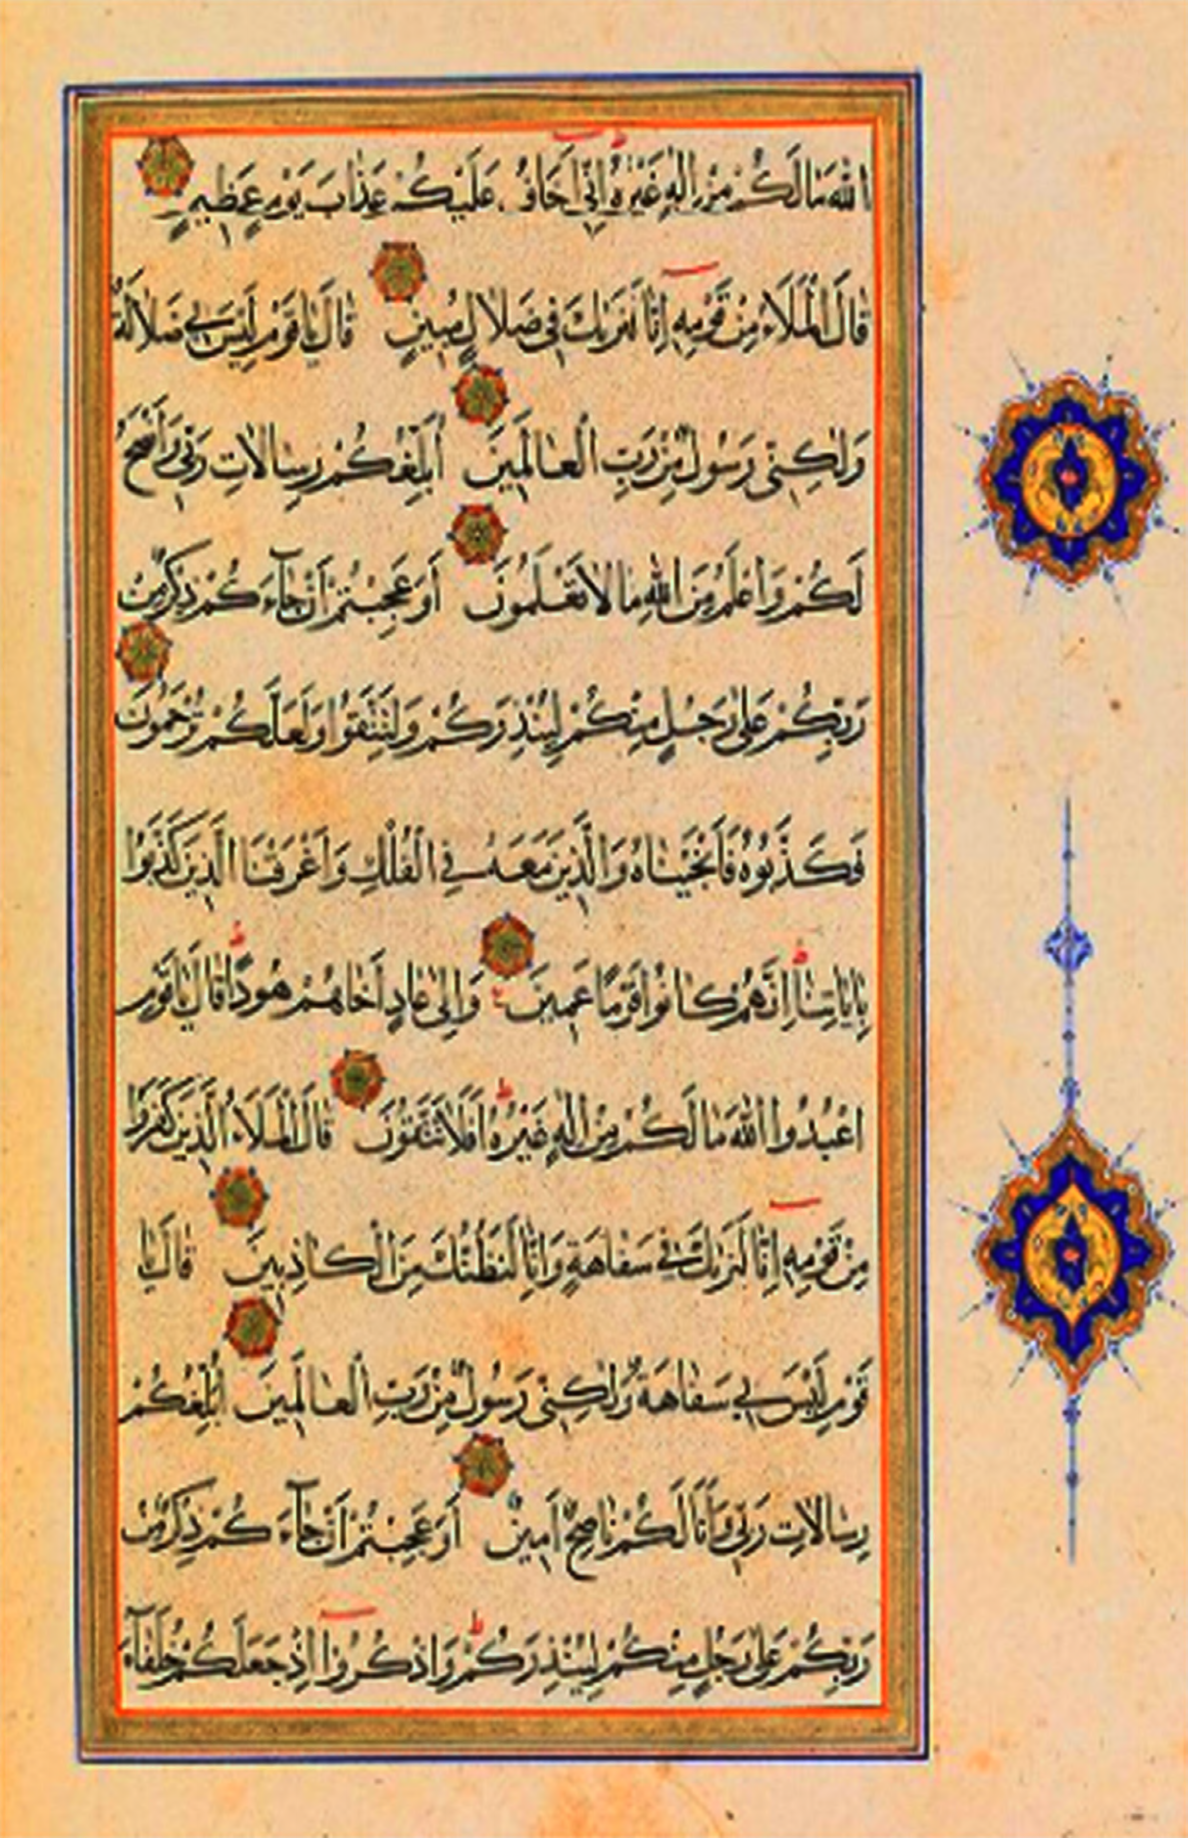 الله مَا لَكُمْ مِنْ اِلٰهٍ غَيْرُهُ اِنِّي اَخَافُ عَلَيْكُمْ عَذَابَ يَوْمٍ عَظِيمٍ
قَالَ الْمَلَاُ مِنْ قَوْمِهِ اِنَّا لَنَرٰيكَ فِي ضَلَالٍ مُبِينٍ قَالَ يَا قَوْمِ لَيْسَ بِي ضَلَالَةٌ
وَلٰكِنِّي رَسُولٌ مِنْ رَبِّ الْعَالَمِينَ اُبَلِّغُكُمْ رِسَالَاتِ رَبِّي وَاَنْصَحُ
لَكُمْ وَاَعْلَمُ مِنَ اللهِ مَا لَا تَعْلَمُونَ اَوَعَجِبْتُمْ اَنْ جَآءَكُمْ ذِكْرٌ مِنْ
رَبِّكُمْ عَلٰى رَجُلٍ مِنْكُمْ لِيُنْذِرَكُمْ وَلِتَتَّقُوا وَلَعَلَّكُمْ تُرْحَمُونَ
فَكَذَّبُوهُ فَاَنْجَيْنَاهُ وَالَّذِينَ مَعَهُ فِي الْفُلْكِ وَاَغْرَقْنَا الَّذِينَ كَذَّبُوا
بِاٰيَاتِنَا اِنَّهُمْ كَانُوا قَوْمًا عَمِينَ وَاِلٰى عَادٍ اَخَاهُمْ هُودًا قَالَ يَا قَوْمِ
اعْبُدُوا اللهَ مَا لَكُمْ مِنْ اِلٰهٍ غَيْرُهُ اَفَلَا تَتَّقُونَ قَالَ الْمَلَاُ الَّذِينَ كَفَرُوا
مِنْ قَوْمِهِ اِنَّا لَنَرٰيكَ فِي سَفَاهَةٍ وَاِنَّا لَنَظُنُّكَ مِنَ الْكَاذِبِينَ قَالَ يَا
قَوْمِ لَيْسَ بِي سَفَاهَةٌ وَلٰكِنِّي رَسُولٌ مِنْ رَبِّ الْعَالَمِينَ اُبَلِّغُكُمْ
رِسَالَاتِ رَبِّي وَاَنَا لَكُمْ نَاصِحٌ اَمِينٌ اَوَعَجِبْتُمْ اَنْ جَآءَكُمْ ذِكْرٌ مِنْ
رَبِّكُمْ عَلٰى رَجُلٍ مِنْكُمْ لِيُنْذِرَكُمْ وَاذْكُرُوا اِذْ جَعَلَكُمْ خُلَفَآءَ